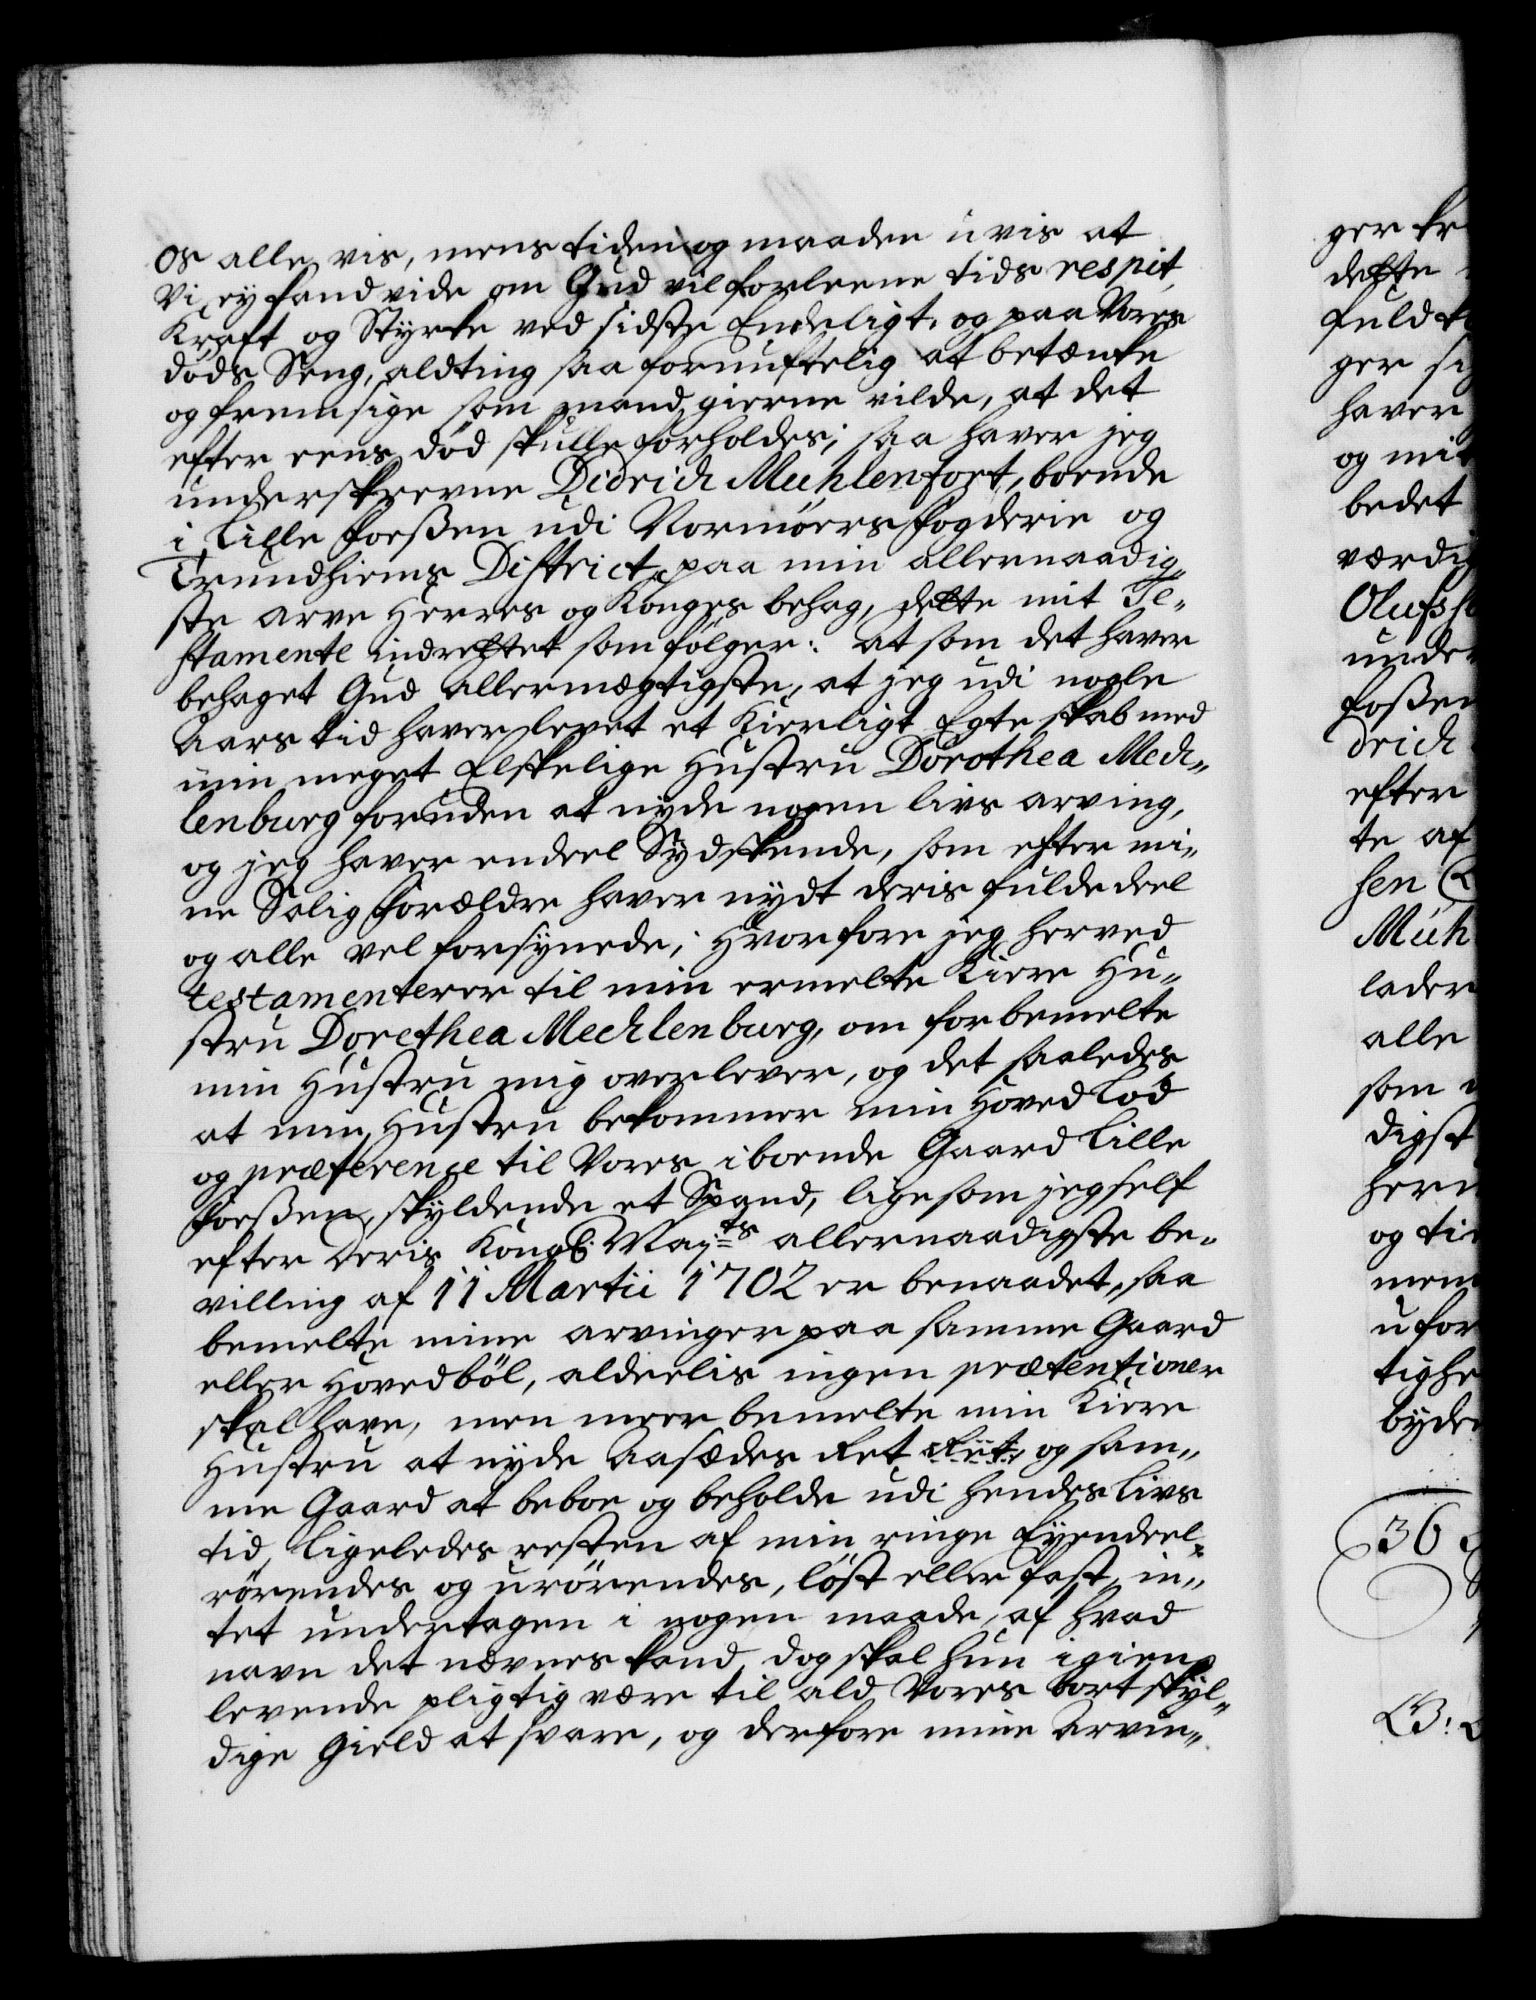 os alle vis, mens tiden og maaden uvis at
Vi ey kand vide om Gud vil forleene tids respit,
Kraft og Styrke ved sidste Endeligt, og paa Vores
döds Seng, aldting saa fornuftelig at betænke
og fremsige som mand gierne vilde, at det
efter eens död skulle forholdes; saa haver jeg
underskrevne Didrich Muhlenfort, boende
i Lille Foeßen udi Normöers Fogderie og
Trundhiems District, paa min allernaadig„
ste arve Herres og Konges behag, dette mit Te„
stamente indrettet som fölger: at som det haver
behaget Gud allermægtigste, at jeg udi nogle
Aars tid haver levet et Kierligt Egteskab med
min meget Elskelige Hustru Dorothea Mech„
lenburg foruden at nyde nogen livs arving,
og jeg haver endeel Sydskende, som efter mi„
ne Salig Forældre haver nydt deris fulde deel
og alle vel forsynede; Hvorfore jeg herved
testamenterer til min ermelte Kiere Hu„
stru Dorethea Mechlenburg, om forbemelte
min Hustru mig overlever, og det saaledes
at min Hustru bekommer min Hoved Lod
og præference til Vores iboende Gaard Lille
Foeßen, skyldende et Spand, ligesom jeg self
efter Deris Kongl. May:ts allernaadigste be„
villing af 11 Martii 1702 er benaadet, saa
bemelte mine arvinger paa samme Gaard
eller Hovedböl, aldeelis ingen prætentioner
skal have, men meer bemelte min Kiere
Hustru at nyde Aasædes Ret og sam„
me Gaard at beboe og beholde udi hendes Livs
tid, ligeledes resten af min ringe Eyendeel,
rörendes og urörendes, löst eller fast, in„
tet undertagen i nogen maade, af hvad
navn det nævnes kand, dog skal hun igien
levende pligtig være til ald Vores bortskyl„
dige Gield at svare, og derfore mine Arvin„
ger
dette
fuld
ger
haver
og mit
bedet
værdig
under
drich
efter
te af
sen
Müh
lader
alle
som
digst
og ti
mem
ufor
tighe
byde
36